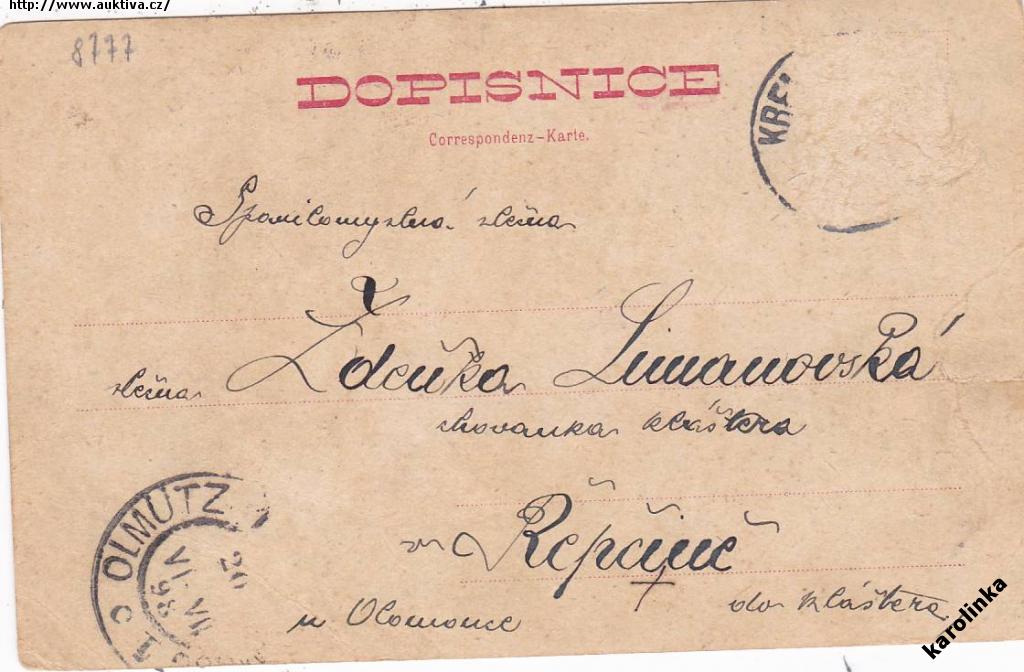 http://www.auktiva.cz/
8777
DOPISNICE
Correspondenz-Karte.
KRE
Spanilomyslná slečna
slečna Zdeňka Simanovská
chovanka kláštera
v Řepčíně
u Olomouce do kláštera
OLMÜTZ
20
VI
98
karolinka